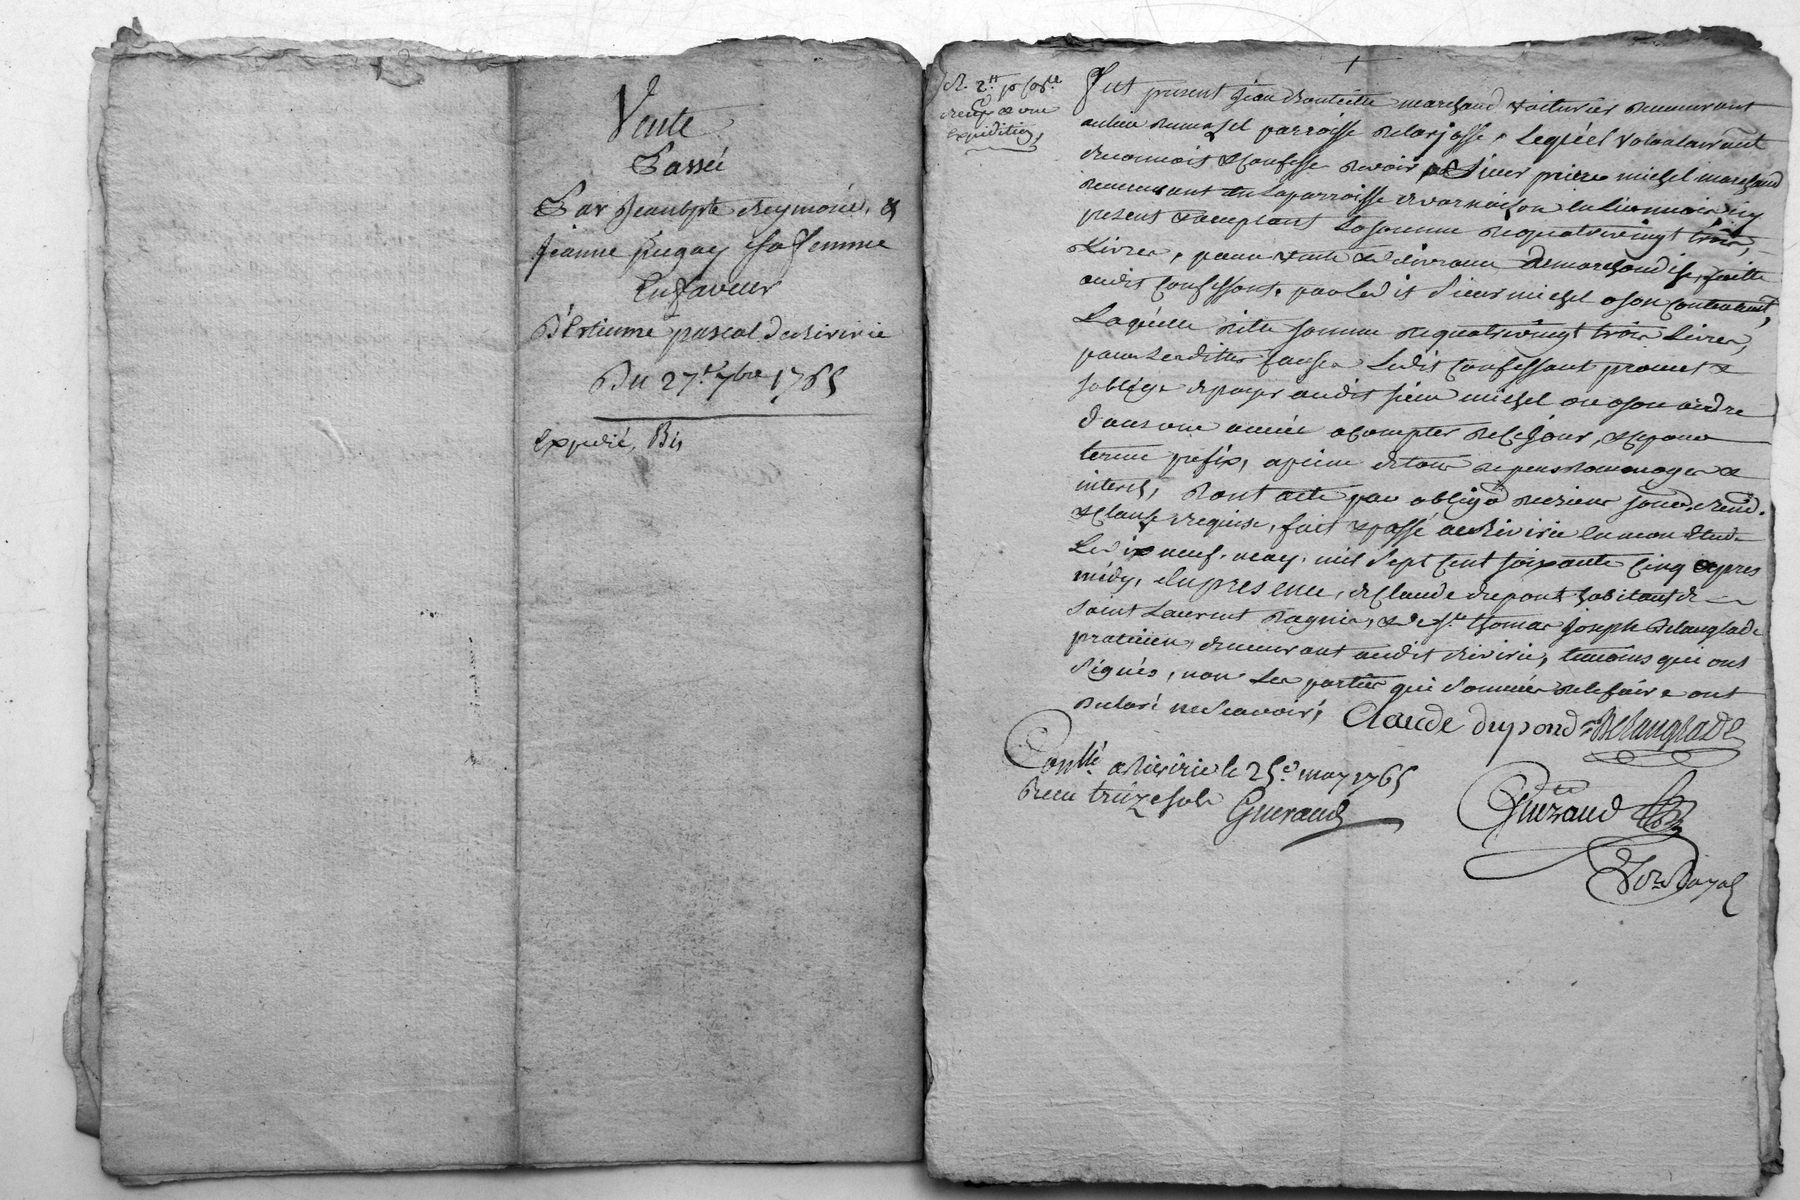 Vente
Passée
Par Jeanbpte Reymond, &
Jeanne pugay sa femme
En faveur
D'Estienne pascal de Riverie
Du 27e 7bre 1765
Expedié, Bis
R. 2tt p
expedition
Fut present Jean marchand voiturier demeurant
au lieu dumazel parroisse delarjasse, Lequel volontairement
reconnoit & confesse devoir au Sieur pierre michel marchand
demeurant en la parroisse en Lionnois icy
present & acceptant La somme de quatrevingt trois
Livres, pour vente & delivrance de marchandise faitte
audit Confessant, par Led it Sieur michel a son Contentement,
Laquelle ditte somme de quatrevingt trois Livres,
pour Lesdittes causes Ledit Confessant promet &
soblige de payer audit sieur michel ou a son ordre
dans une année a compter de Ce jour, & Ce pour
terme prefix, a peine de tous depens dommages &
interets, Dont acte par obligon de biens soumis. renon.
& Clause requise, fait & passé audit Riverie en mon Etude
Le dix neuf. may, mil Sept Cent soixante Cinq apres
midy, En presence, de Claude dupont habitant de
saint Laurent Dagnie, & de sr thomas Joseph Delanglade
praticien demeurant audit Riverie, temoins qui ont
Signés, non Les parties qui Sommées dele faire ont
Declaré ne Scavoir,
Claude dupond Delanglade
Conllé a Riverie le 25e may 1765
Recu treize sols Gueraud
Gueraud
Nore Royal